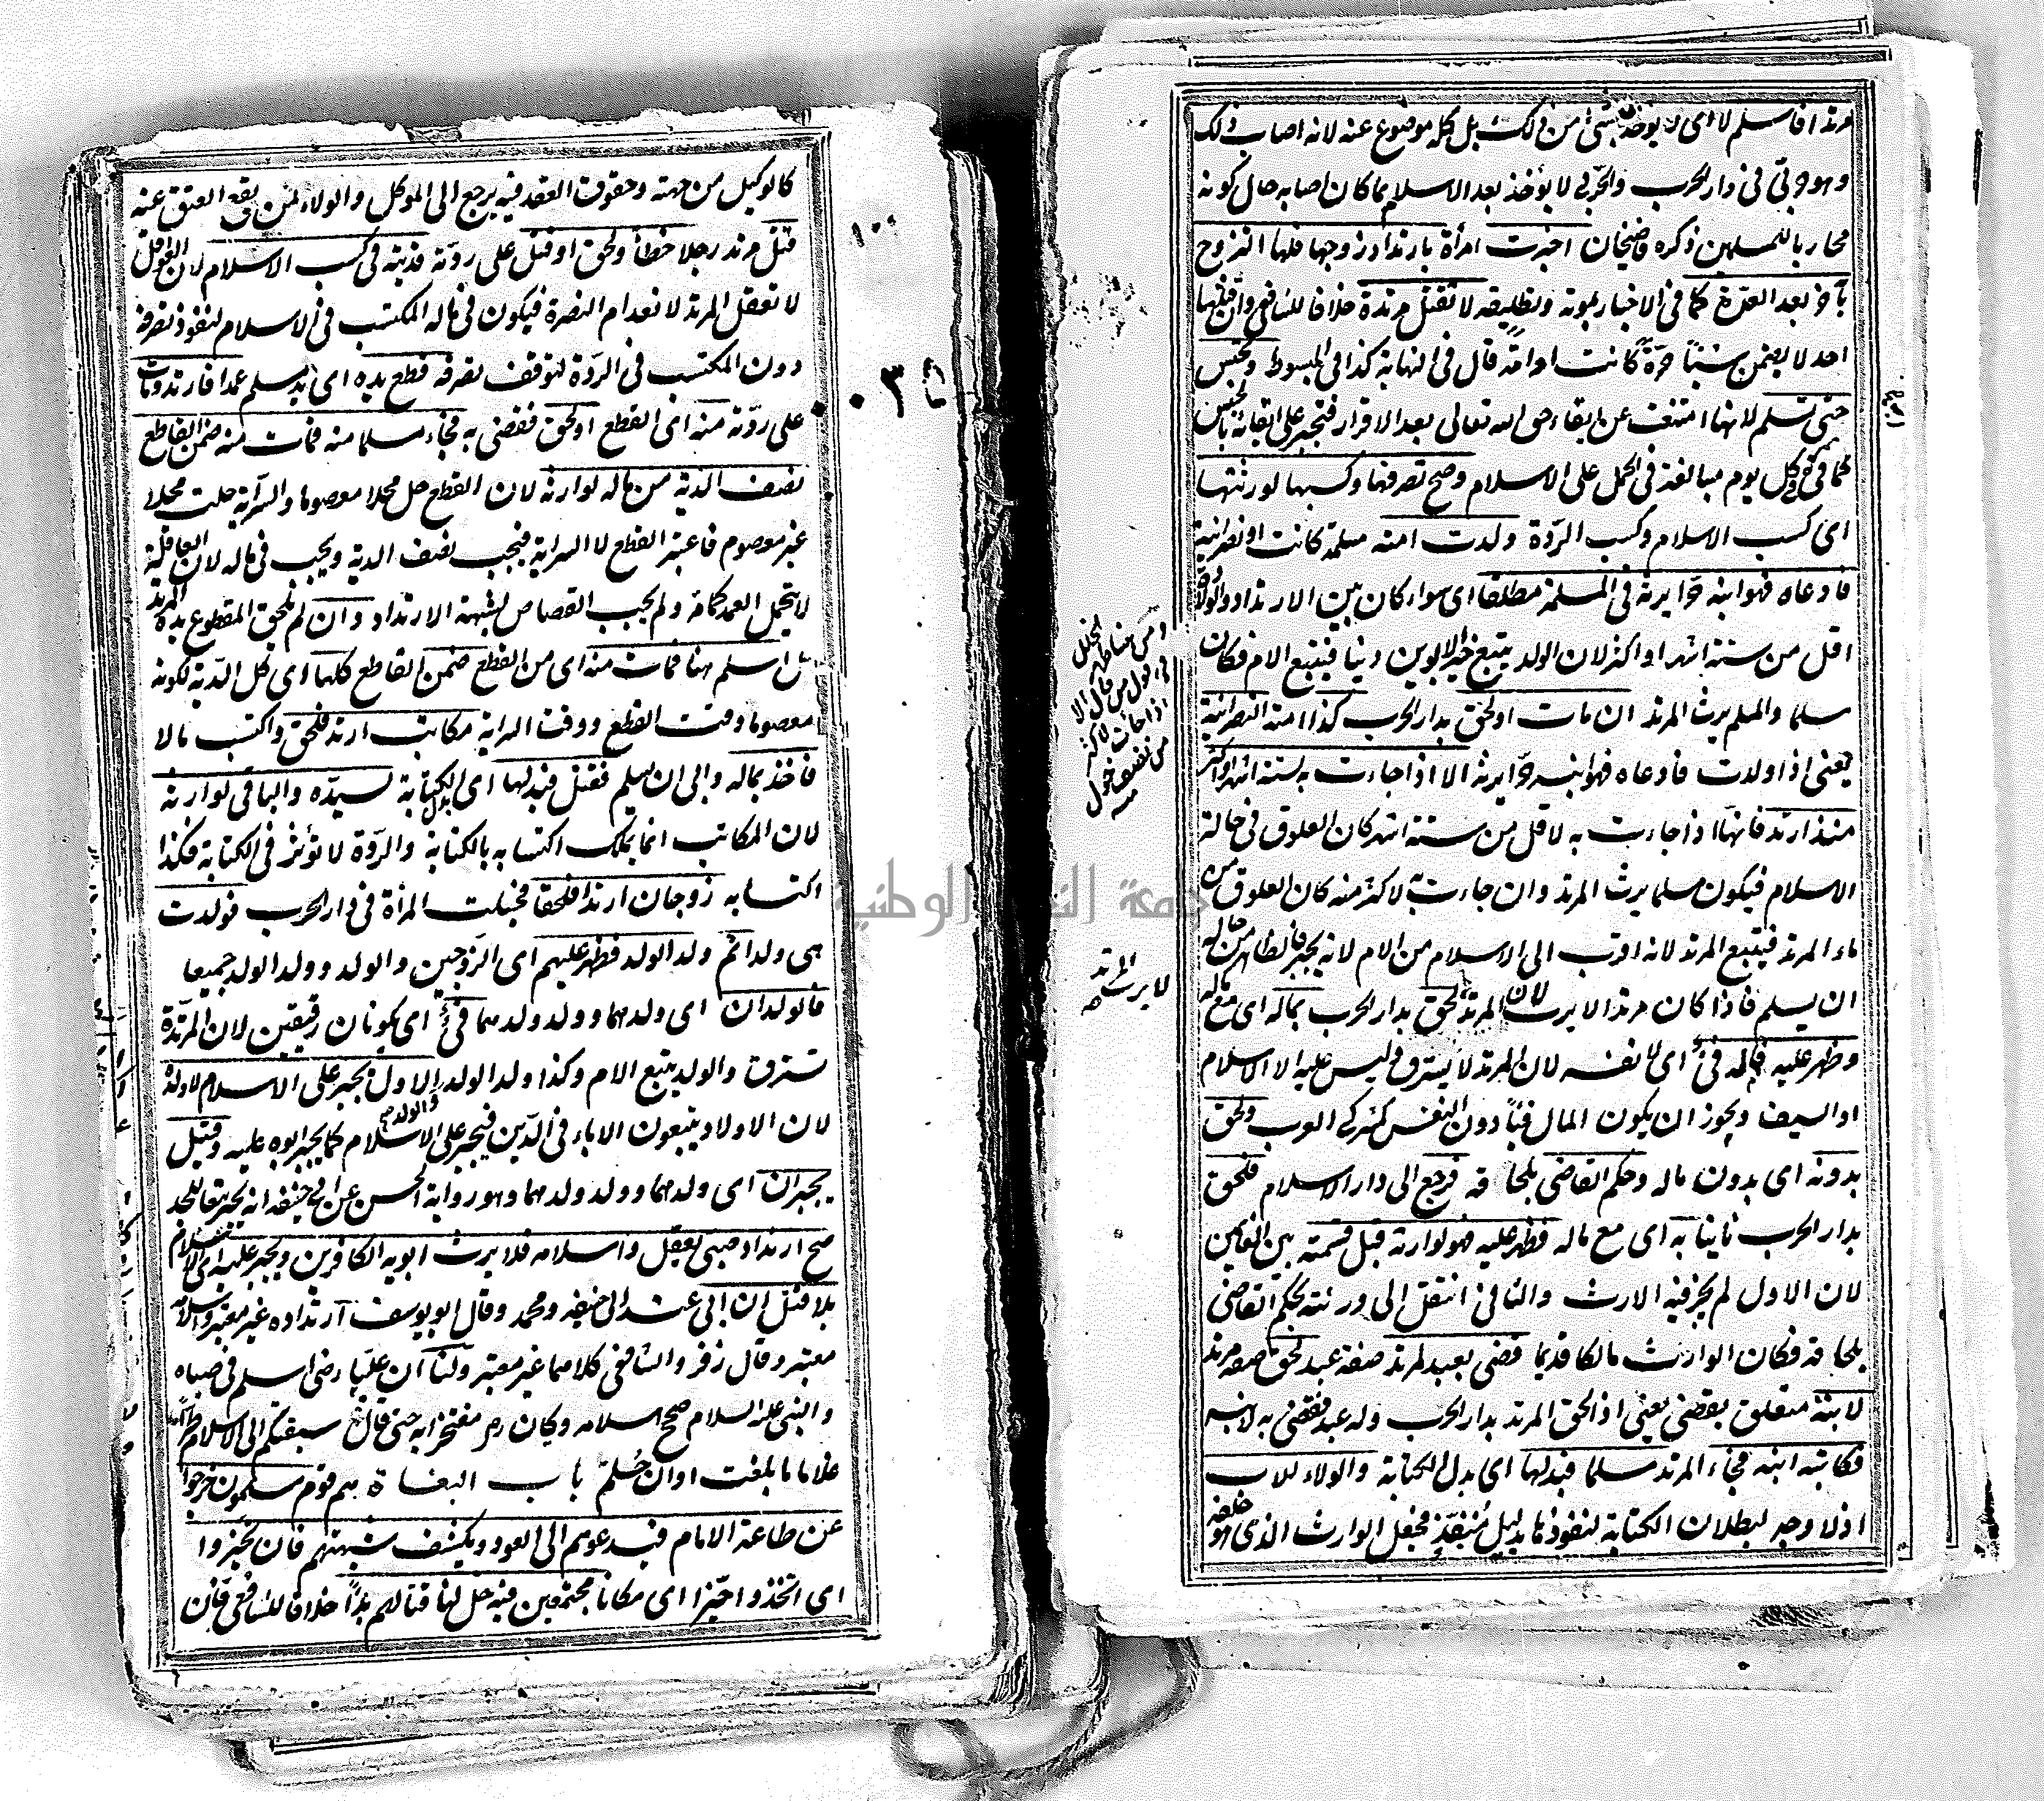 مرتدا فاسلم لا اى لا يؤخذ بشئ من ذلك بل كله موضوع عنه لانه اصاب ذلك
وهو حربى فى دار الحرب والحربى لا يؤخذ بعد الاسلام بما كان اصابه حال كونه
محاربا للمسلمين ذكره قاضيخان اخبرت امرأة بارتداد زوجها فلها التزوج
بآخر بعد العدة كما فى الاخبار بموته وتطليقه لا تقتل مرتدة خلافا للشافعى وان قتلها
احد لا يضمن شيئا حرة كانت او امة قال فى النهاية كذا فى المبسوط وتحبس
حتى تسلم لانها امتنعت عن ايفاء حق الله تعالى بعد الاقرار فتجبر على ايفائه بالحبس
كل يوم مبالغة فى الحمل على الاسلام وصح تصرفها وكسبها لورثتها
اى كسب الاسلام وكسب الردة ولدت امته مسلمة كانت او نصرانية
فادعاه فهو ابنه حرا يرثه فى المسلمة مطلقا اى سواء كان بين الارتداد والولادة
اقل من ستة اشهر او اكثر لان الولد يتبع خير الابوين دينا فيتبع الام فكان
مسلما والمسلم يرث المرتد ان مات او لحق بدار الحرب كذا امته النصرانية
يعنى اذا ولدت فادعاه فهو ابنه حرا يرثه الا اذا جاءت به لستة اشهر او اكثر
منذ ارتد فانها اذا جاءت به لاقل من ستة اشهر كان العلوق فى حالة
الاسلام فيكون مسلما يرث المرتد وان جاءت به لاكثر منه كان العلوق من
ماء المرتد فيتبع المرتد لانه اقرب الى الاسلام من الام لانه يجبر فالظاهر من حاله
ان يسلم فاذا كان مرتدا لا يرث لان المرتد لحق بدار الحرب بماله اى مع ماله
وظهر عليه فماله فئ اى لا نفسه لان المرتد لا يسترق وليس عليه الا الاسلام
او السيف ويجوز ان يكون المال فيئا دون النفس كمشركى العرب ولحق
بدونه اى بدون ماله وحكم القاضى بلحاقه فرجع الى دار الاسلام فلحق
بدار الحرب ثانيا به اى مع ماله فظهر عليه فهو لوارثه قبل قسمته بين الغانمين
لان الاول لم يجز فيه الارث والثانى انتقل الى ورثته بحكم القاضى
بلحاقه فكان الوارث مالكا قديما قضى بعبد لمرتد صفة عبد لحق صفة مرتد
لابنه متعلق بقضى يعنى اذا لحق المرتد بدار الحرب وله عبد فقضى به لابنه
فكاتبه ابنه فجاء المرتد مسلما فبدلها اى بدل الكتابة والولاء للاب
اذ لا وجه لبطلان الكتابة لنفوذها بدليل منفذ فجعل الوارث الذى هو خلفه
لا يرث المرتد
كالوكيل من جهته وحقوق العقد فيه يرجع الى الموكل والولاء لمن يقع العتق عنه
قتل مرتد رجلا خطأ ولحق او قتل على ردته فديته فى كسب الاسلام لان العواقل
لا تعقل المرتد لانعدام النصرة فيكون فى ماله المكتسب فى الاسلام لنفوذ تصرفه
دون المكتسب فى الردة لتوقف تصرفه قطع يده اى يد مسلم عمدا فارتد ومات
على ردته منه اى القطع او لحق فقضى به فجاء مسلما منه فمات منه ضمن القاطع
نصف الدية من ماله لوارثه لان القطع حل محلا معصوما والسراية حلت محلا
غير معصوم فاعتبر القطع لا السراية فيجب نصف الدية ويجب فى ماله لان العاقلة
لا يتحمل العمد كما مر ولم يجب القصاص لشبهة الارتداد وان لم يلحق المقطوع يده المرتد
اسلم هنا فمات منه اى من القطع ضمن القاطع كلها اى كل الدية لكونه
معصوما وقت القطع ووقت السراية مكاتب ارتد فلحق واكتسب مالا
فاخذ بماله وابى ان يسلم فقتل فبدلها اى بدل الكتابة لسيده والباقى لوارثه
لان المكاتب انما يملك اكتسابه بالكتابة والردة لا تؤثر فى الكتابة فكذا
اكتسابه زوجان ارتدا فلحقا فحبلت المرأة فى دار الحرب فولدت
هى ولدا ثم ولد الولد فظهر عليهم اى الزوجين والولد وولد الولد جميعا
فالولدان اى ولدهما وولد ولدهما فئ اى يكونان رقيقين لان المرتدة
تسترق والولد يتبع الام وكذا ولد الولد والولد الاول يجبر على الاسلام لا ولده
لان الاولاد يتبعون الاباء فى الدين فيجبر على الاسلام كما يجبر ابوه عليه وقيل
يجبران اى ولدهما وولد ولدهما وهو رواية الحسن عن ابى حنيفة انه يجبر تبعا للجد
صح ارتداد صبى يعقل واسلامه فلا يرث ابويه الكافرين ويجبر عليه اى الاسلام
بلا قتل ان ابى عند ابى حنيفة ومحمد وقال ابو يوسف ارتداده غير معتبر واسلامه
معتبر وقال زفر والشافعى كلاهما غير معتبر ولنا ان عليا رضى اسلم فى صباه
والنبى عليه السلام صحح اسلامه وكان رضى مفتخرا به حتى قال سبقتكم الى الاسلام طرا
غلاما ما بلغت اوان حلم باب البغاة هم قوم مسلمون خرجوا
عن طاعة الامام فيدعوهم الى العود ويكشف شبهتهم فان تحيزوا
اى اتخذوا حيزا اى مكانا مجتمعين فيه حل لنا قتالهم بدأ خلافا للشافعى فان
١٠٠
جامعة النجاح الوطنية